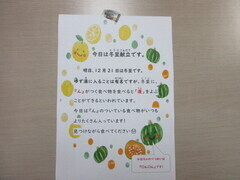 今日は冬至献立です。
明日、12月21日は冬至です。
ゆず湯に入ることは有名ですが、冬至に、
「ん」がつく食べ物を食べると「運」をよぶ
ことができるといわれています。
今日は「ん」のついている食べ物がいつも
よりたくさん入っています！
見つけながら食べてください